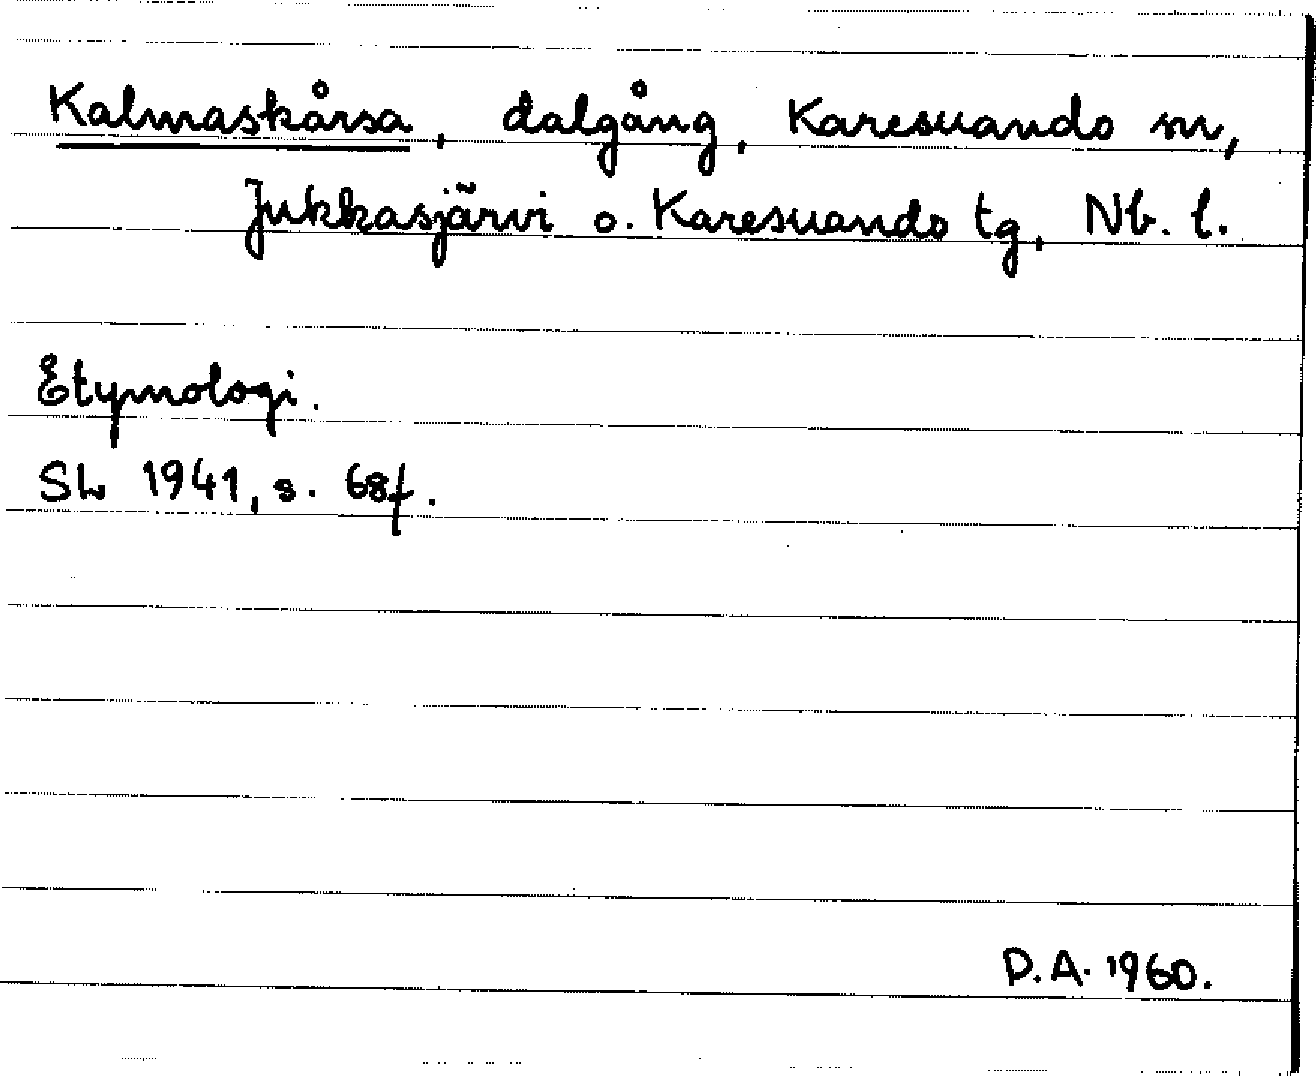 Kalmaskårsa, dalgång, Karesuando sn,
Jukkasjärvi o. Karesuando tg, Nb. l.
Etymologi.
SL 1941, s. 68f.
D.A. 1960.